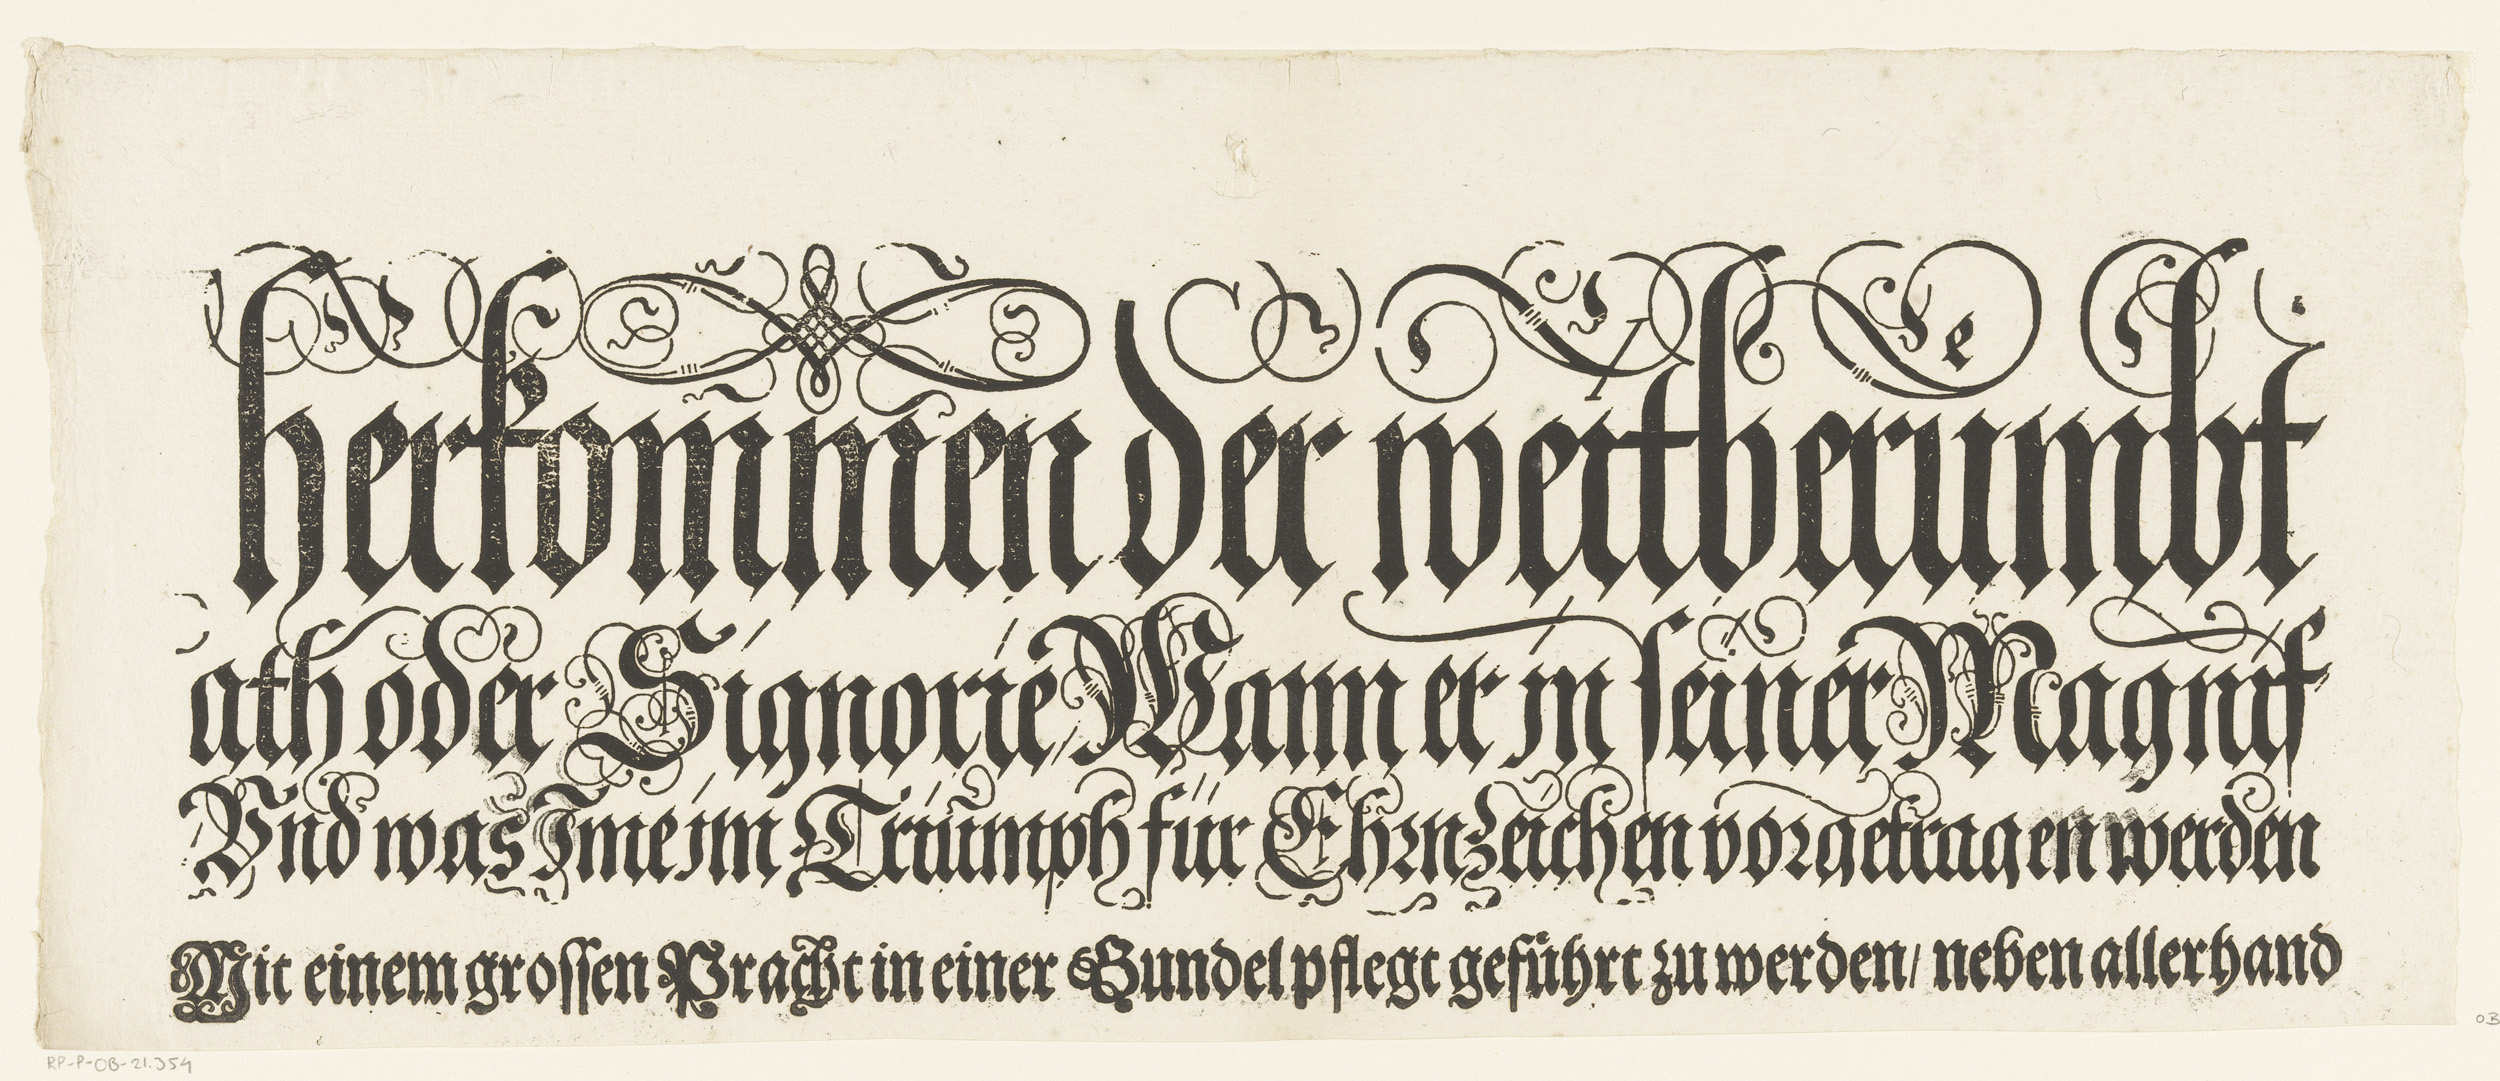 herkom̃men der weitberumbt
ath oder Signorie/ Wann er in seiner Magnif
Vnd was Ime im Triumph für Ehrnzeichen vorgetragen werden
Mit einem grossen Pracht in einer Gundel pflegt geführt zu werden/ neben allerhand
RP-P-OB-21.354
OB